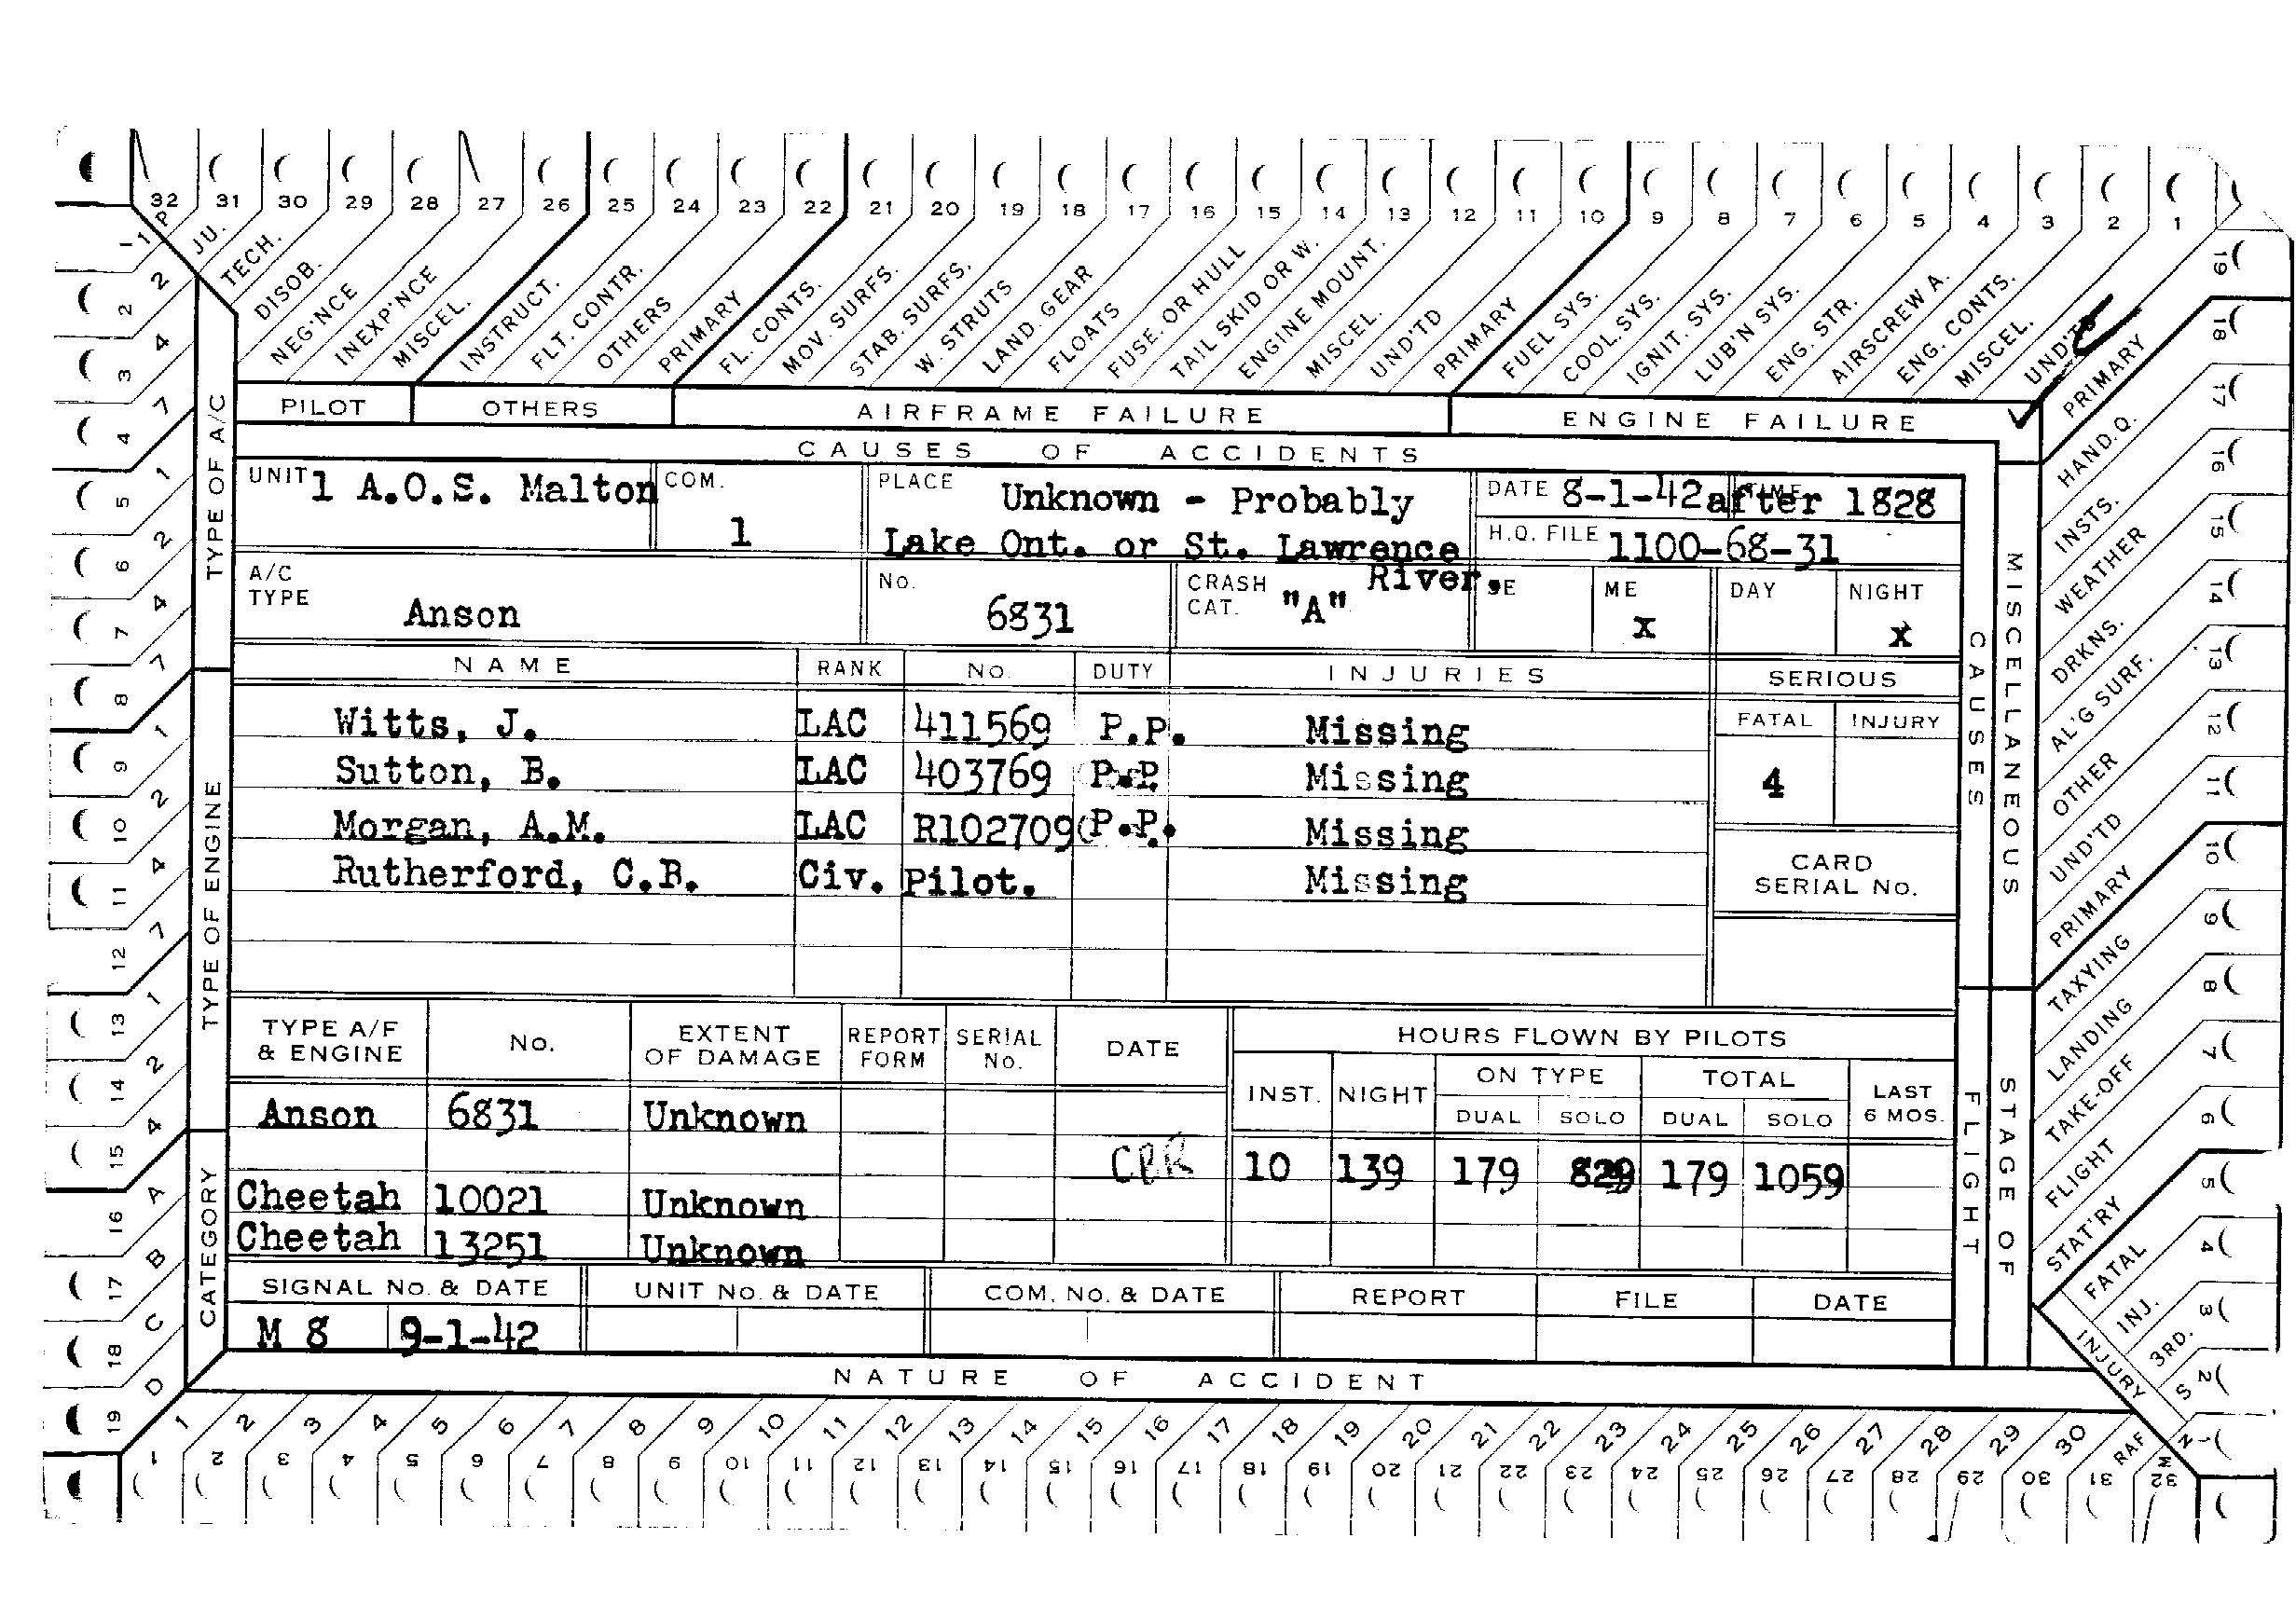 32 31 30 29 28 27 26 25 24 23 22 21 20 19 18 17 16 15 14 13 12 11 10 9 8 7 6 5 4 3 2 1
P JU. TECH. DISOB. NEG'NCE INEXP'NCE MISCEL. INSTRUCT. FLT. CONTR. OTHERS PRIMARY FL. CONTS. MOV. SURFS. STAB. SURFS. W. STRUTS LAND. GEAR FLOATS FUSE. OR HULL TAIL SKID OR W. ENGINE MOUNT. MISCEL. UND'TD PRIMARY FUEL SYS. COOL. SYS. IGNIT. SYS. LUB'N SYS. ENG. STR. AIRSCREW A. ENG. CONTS. MISCEL. UND'TD
PILOT OTHERS AIRFRAME FAILURE ENGINE FAILURE
CAUSES OF ACCIDENTS
UNIT 1 A.O.S. Malton COM. 1 PLACE Unknown - Probably DATE 8-1-42 TIME after 1828
Lake Ont. or St. Lawrence River. H.Q. FILE 1100-68-31
A/C TYPE Anson No. 6831 CRASH CAT. "A" SE ME x DAY NIGHT x
NAME RANK No. DUTY INJURIES SERIOUS
Witts, J. LAC 411569 P.P. Missing FATAL INJURY
Sutton, B. LAC 403769 P.P. Missing 4
Morgan, A.M. LAC R102709 P.P. Missing
Rutherford, C.B. Civ. Pilot. Missing
CARD SERIAL No.
TYPE A/F & ENGINE No. EXTENT OF DAMAGE REPORT FORM SERIAL No. DATE HOURS FLOWN BY PILOTS
INST. NIGHT ON TYPE TOTAL LAST 6 MOS.
DUAL SOLO DUAL SOLO
Anson 6831 Unknown
10 139 179 829 179 1059
Cheetah 10021 Unknown
Cheetah 13251 Unknown
SIGNAL No. & DATE UNIT No. & DATE COM. No. & DATE REPORT FILE DATE
M 8 9-1-42
NATURE OF ACCIDENT
1 2 3 4 5 6 7 8 9 10 11 12 13 14 15 16 17 18 19 20 21 22 23 24 25 26 27 28 29 30 RAF
1 2 3 4 5 6 7 8 9 10 11 12 13 14 15 16 17 18 19 20 21 22 23 24 25 26 27 28 29 30 31 32
TYPE OF A/C
TYPE OF ENGINE
CATEGORY
1 2 4 7 1 2 4 7 1 2 4 7 1 2 4 A B C D
1 2 3 4 5 6 7 8 9 10 11 12 13 14 15 16 17 18 19
MISCELLANEOUS
CAUSES
STAGE OF
FLIGHT
PRIMARY
HAND. Q.
INSTS.
WEATHER
DRKNS.
AL'G SURF.
OTHER
UND'TD
PRIMARY
TAXYING
LANDING
TAKE-OFF
FLIGHT
STAT'RY
FATAL
INJ.
3RD.
S
INJURY
19 18 17 16 15 14 13 12 11 10 9 8 7 6 5 4 3 2 1